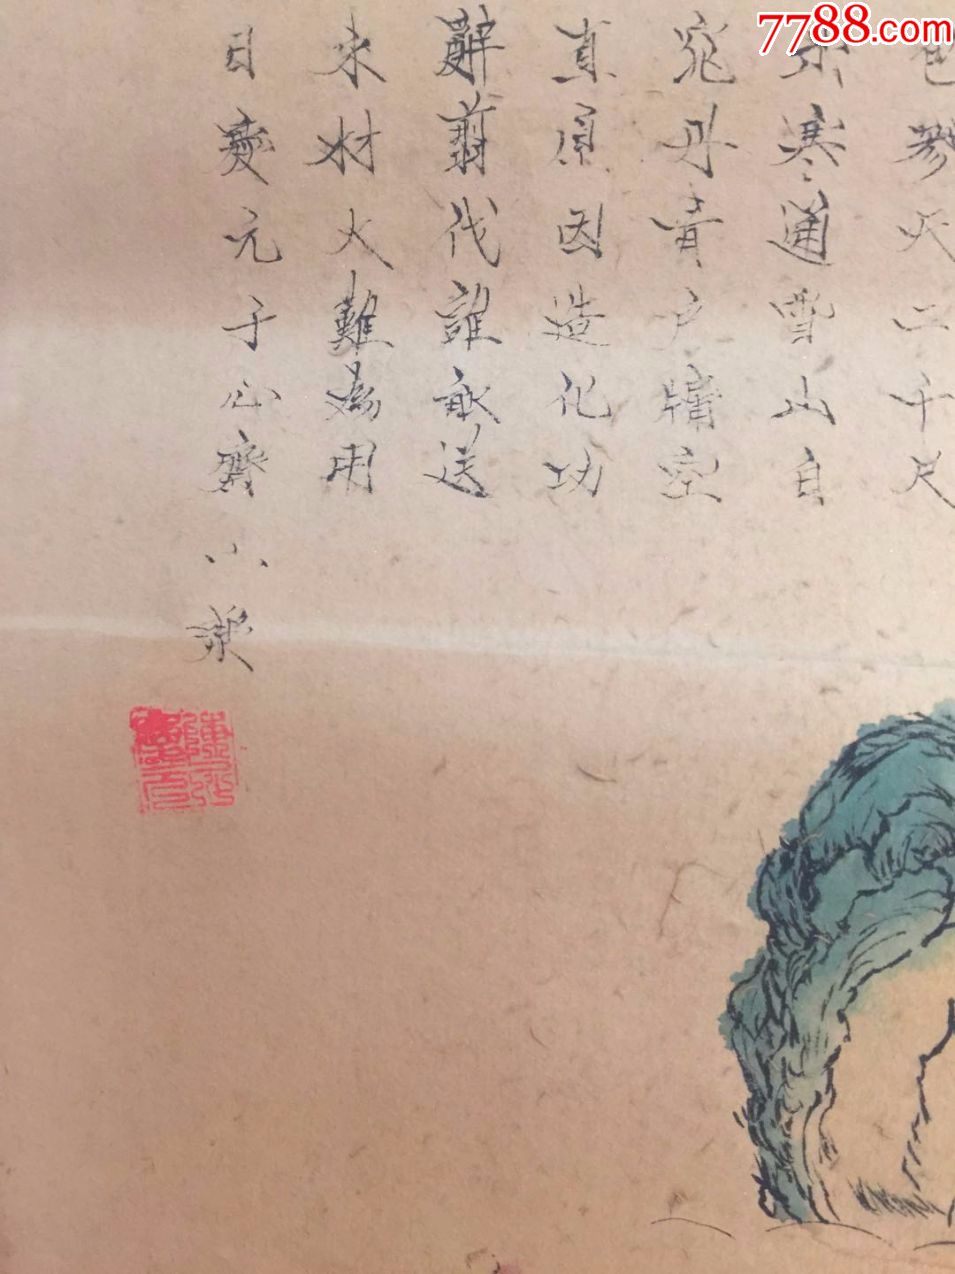 7788.com
色參天二千尺
寒通雪山自
窕丹青户牖空
直原因造化功
辭翦伐誰敢送
來材大難為用
日夔元子心齋 小